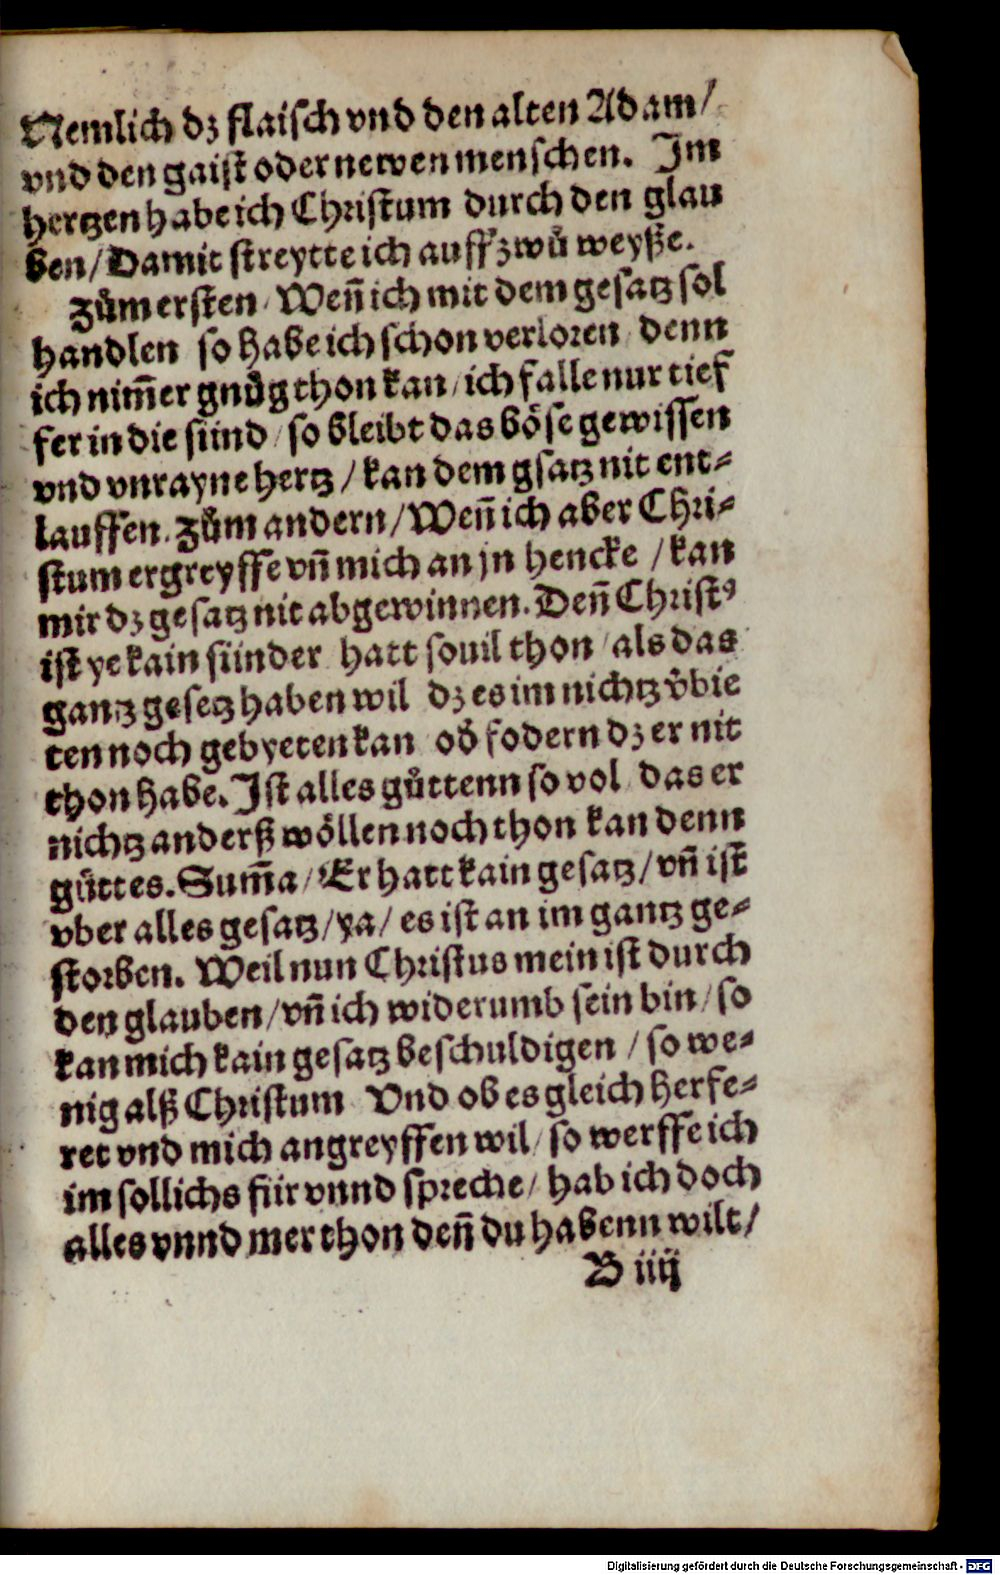 Nemlich dz flaisch vnd den alten Adam/
vnd den gaist oder newen menschen. Im
hertzen habe ich Christum durch den glau
ben/Damit streytte ich auff zwů weyße.
Zům ersten/Weñ ich mit dem gesatz sol
handlen so habe ich schon verloren/denn
ich nim̃er gnůg thon kan/ich falle nur tief
fer in die sünd/so bleibt das böse gewissen
vnd vnrayne hertz/kan dem gsatz nit ent⸗
lauffen. Zům andern/Weñ ich aber Chri⸗
stum ergreyffe vñ mich an jn hencke/kan
mir dz gesatz nit abgewinnen. Deñ Christꝰ
ist ye kain sünder hatt souil thon/als das
gantz gesetz haben wil dz es im nichtz v̊bie
ten noch gebyeten kan od̓ fodern dz er nit
thon habe. Ist alles gůttenn so vol/das er
nichtz anderß wöllen noch thon kan denn
gůttes. Sum̃a/Er hatt kain gesatz/vñ ist
vber alles gesatz/ya/es ist an im gantz ge⸗
storben. Weil nun Christus mein ist durch
den glauben/vñ ich widerumb sein bin/so
kan mich kain gesatz beschuldigen/so we⸗
nig alß Christum Vnd ob es gleich herfe⸗
ret vnd mich angreyffen wil/so werffe ich
im sollichs für vnnd spreche/hab ich doch
alles vnnd mer thon deñ du habenn wilt/
B iiij
Digitalisierung gefördert durch die Deutsche Forschungsgemeinschaft - DFG